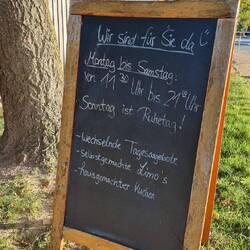 Wir sind für Sie da
Montag bis Samstag:
von 11³⁰ Uhr bis 21⁰⁰ Uhr
Sonntag ist Ruhetag!
- Wechselnde Tagesangebote
- Selbstgemachte Limo's
- Hausgemachter Kuchen